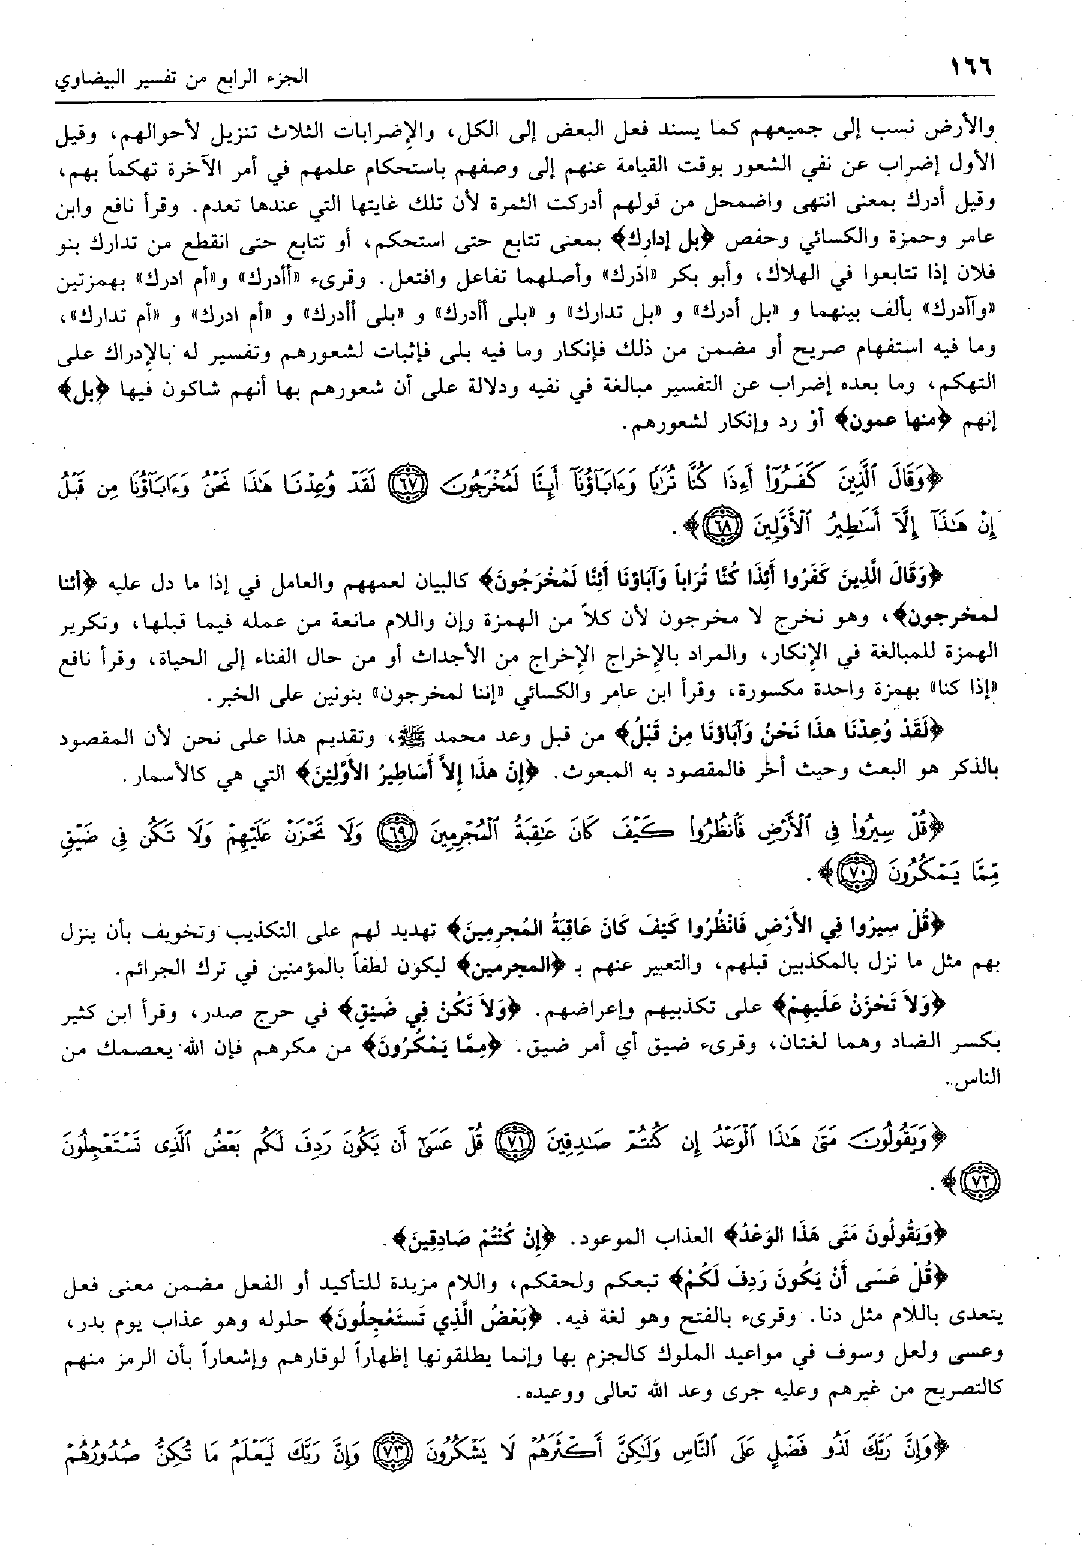 ١٦٦
الجزء الرابع من تفسير البيضاوي
والأرض نسب إلى جميعهم كما يسند فعل البعض إلى الكل، والإضرابات الثلاث تنزيل لأحوالهم، وقيل
الأول إضراب عن نفي الشعور بوقت القيامة عنهم إلى وصفهم باستحكام علمهم في أمر الآخرة تهكماً بهم،
وقيل أدرك بمعنى انتهى واضمحل من قولهم أدركت الثمرة لأن تلك غايتها التي عندها تعدم. وقرأ نافع وابن
عامر وحمزة والكسائي وحفص ﴿بل إدارك﴾ بمعنى تتابع حتى استحكم، أو تتابع حتى انقطع من تدارك بنو
فلان إذا تتابعوا في الهلاك، وأبو بكر «اذرك» وأصلهما تفاعل وافتعل. وقرىء «أأدرك» و«أم ادرك» بهمزتين
«وآأدرك» بألف بينهما و «بل أدرك» و «بل تدارك» و «بلى أأدرك» و «بلى أأدرك» و «أم ادرك» و «أم تدارك»،
وما فيه استفهام صريح أو مضمن من ذلك فإنكار وما فيه بلى فإثبات لشعورهم وتفسير له بالإدراك على
التهكم، وما بعده إضراب عن التفسير مبالغة في نفيه ودلالة على أن شعورهم بها أنهم شاكون فيها ﴿بل﴾
إنهم ﴿منها عمون﴾ أو رد وإنكار لشعورهم.
﴿وَقَالَ ٱلَّذِينَ كَفَرُوٓا۟ أَءِذَا كُنَّا تُرَٰبًا وَءَابَآؤُنَآ أَئِنَّا لَمُخْرَجُونَ ٦٧ لَقَدْ وُعِدْنَا هَٰذَا نَحْنُ وَءَابَآؤُنَا مِن قَبْلُ
إِنْ هَٰذَآ إِلَّآ أَسَٰطِيرُ ٱلْأَوَّلِينَ ٦٨﴾.
﴿وَقَالَ الَّذِينَ كَفَرُوا أَئِذَا كُنَّا تُرَاباً وَآبَاؤُنَا أَئِنَّا لَمُخْرَجُونَ﴾ كالبيان لعمههم والعامل في إذا ما دل عليه ﴿أئنا
لمخرجون﴾، وهو نخرج لا مخرجون لأن كلاً من الهمزة وإن واللام مانعة من عمله فيما قبلها، وتكرير
الهمزة للمبالغة في الإنكار، والمراد بالإخراج الإخراج من الأجداث أو من حال الفناء إلى الحياة، وقرأ نافع
«إذا كنا» بهمزة واحدة مكسورة، وقرأ ابن عامر والكسائي «إننا لمخرجون» بنونين على الخبر.
﴿لَقَدْ وُعِدْنَا هذَا نَحْنُ وَآبَاؤُنَا مِنْ قَبْلُ﴾ من قبل وعد محمد ﷺ، وتقديم هذا على نحن لأن المقصود
بالذكر هو البعث وحيث أخر فالمقصود به المبعوث. ﴿إِنْ هذَا إِلاَّ أَسَاطِيرُ الأَوَّلِيْنَ﴾ التي هي كالأسمار.
﴿قُلْ سِيرُوا۟ فِى ٱلْأَرْضِ فَٱنظُرُوا۟ كَيْفَ كَانَ عَٰقِبَةُ ٱلْمُجْرِمِينَ ٦٩ وَلَا تَحْزَنْ عَلَيْهِمْ وَلَا تَكُن فِى ضَيْقٍ
مِّمَّا يَمْكُرُونَ ٧٠﴾.
﴿قُلْ سِيرُوا فِي الأَرْضِ فَانْظُرُوا كَيْفَ كَانَ عَاقِبَةُ المُجرِمِينَ﴾ تهديد لهم على التكذيب وتخويف بأن ينزل
بهم مثل ما نزل بالمكذبين قبلهم، والتعبير عنهم بـ ﴿المجرمين﴾ ليكون لطفاً بالمؤمنين في ترك الجرائم.
﴿وَلاَ تَحْزَنْ عَلَيهِمْ﴾ على تكذيبهم وإعراضهم. ﴿وَلاَ تَكُنْ فِي ضَيْقٍ﴾ في حرج صدر، وقرأ ابن كثير
بكسر الضاد وهما لغتان، وقرىء ضيق أي أمر ضيق. ﴿مِمَّا يَمْكُرُونَ﴾ من مكرهم فإن الله يعصمك من
الناس.
﴿وَيَقُولُونَ مَتَىٰ هَٰذَا ٱلْوَعْدُ إِن كُنتُمْ صَٰدِقِينَ ٧١ قُلْ عَسَىٰٓ أَن يَكُونَ رَدِفَ لَكُم بَعْضُ ٱلَّذِى تَسْتَعْجِلُونَ
٧٢﴾.
﴿وَيَقُولُونَ مَتَى هَذَا الوَعْدُ﴾ العذاب الموعود. ﴿إِنْ كُنْتُمْ صَادِقِينَ﴾.
﴿قُلْ عَسَى أَنْ يَكُونَ رَدِفَ لَكُمْ﴾ تبعكم ولحقكم، واللام مزيدة للتأكيد أو الفعل مضمن معنى فعل
يتعدى باللام مثل دنا. وقرىء بالفتح وهو لغة فيه. ﴿بَعْضُ الَّذِي تَستَعْجِلُونَ﴾ حلوله وهو عذاب يوم بدر،
وعسى ولعل وسوف في مواعيد الملوك كالجزم بها وإنما يطلقونها إظهاراً لوقارهم وإشعاراً بأن الرمز منهم
كالتصريح من غيرهم وعليه جرى وعد الله تعالى ووعيده.
﴿وَإِنَّ رَبَّكَ لَذُو فَضْلٍ عَلَى ٱلنَّاسِ وَلَٰكِنَّ أَكْثَرَهُمْ لَا يَشْكُرُونَ ٧٣ وَإِنَّ رَبَّكَ لَيَعْلَمُ مَا تُكِنُّ صُدُورُهُمْ